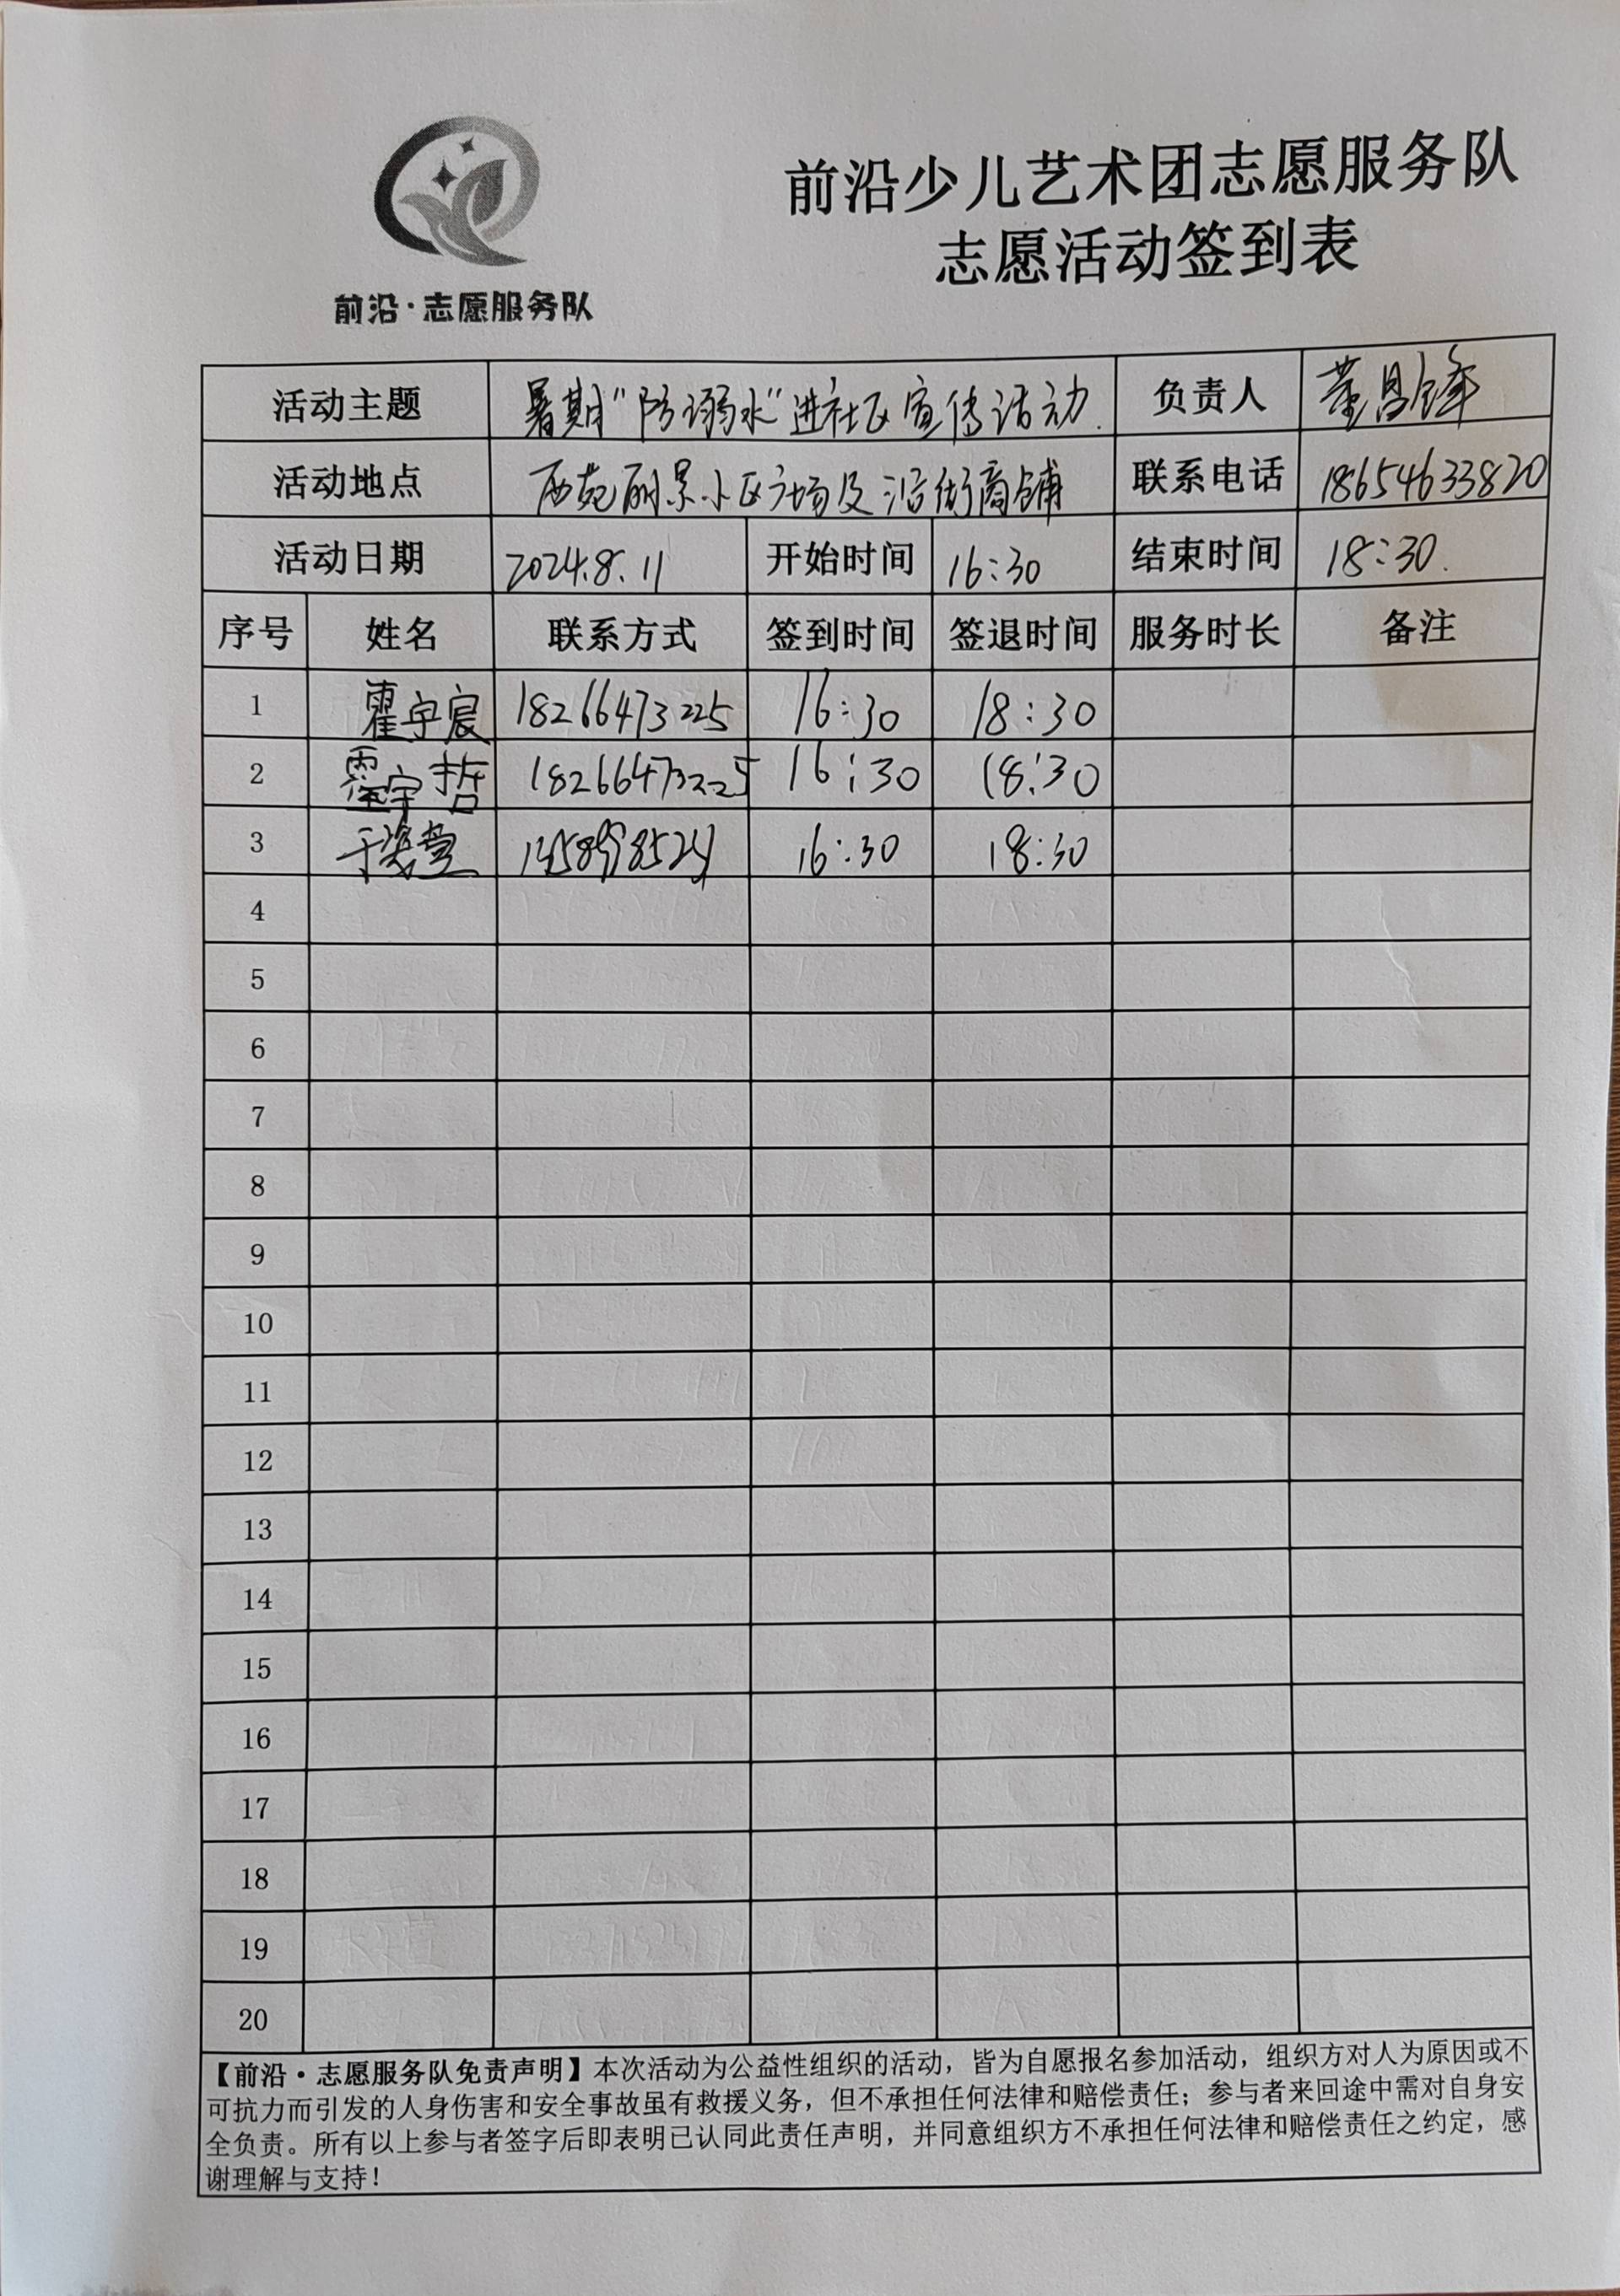 前沿·志愿服务队
前沿少儿艺术团志愿服务队
志愿活动签到表
活动主题 暑期“防溺水”进社区宣传活动. 负责人 董昌锋
活动地点 西苑丽景小区广场及沿街商铺 联系电话 18654633820
活动日期 2024.8.11 开始时间 16:30 结束时间 18:30.
序号 姓名 联系方式 签到时间 签退时间 服务时长 备注
1 霍宇宸 18266473225 16:30 18:30
2 霍宇哲 18266473225 16:30 18:30
3 16:30 18:30
4
5
6
7
8
9
10
11
12
13
14
15
16
17
18
19
20
【前沿·志愿服务队免责声明】本次活动为公益性组织的活动，皆为自愿报名参加活动，组织方对人为原因或不
可抗力而引发的人身伤害和安全事故虽有救援义务，但不承担任何法律和赔偿责任；参与者来回途中需对自身安
全负责。所有以上参与者签字后即表明已认同此责任声明，并同意组织方不承担任何法律和赔偿责任之约定，感
谢理解与支持！